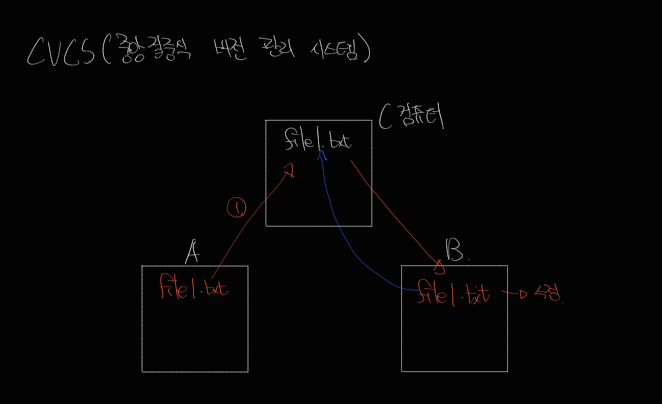 CVCS(중앙집중식 버전 관리 시스템)
C 컴퓨터
file1.txt
①
A
B.
file1.txt
file1.txt → 수정.